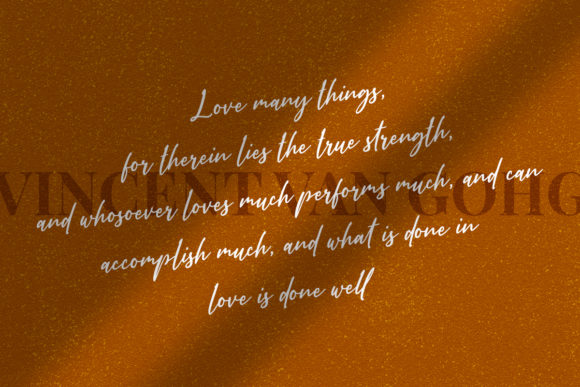 Love many things,
for therein lies the true strength,
VINCENT VAN GOHG
and whosoever loves much performs much, and can
accomplish much, and what is done in
love is done well